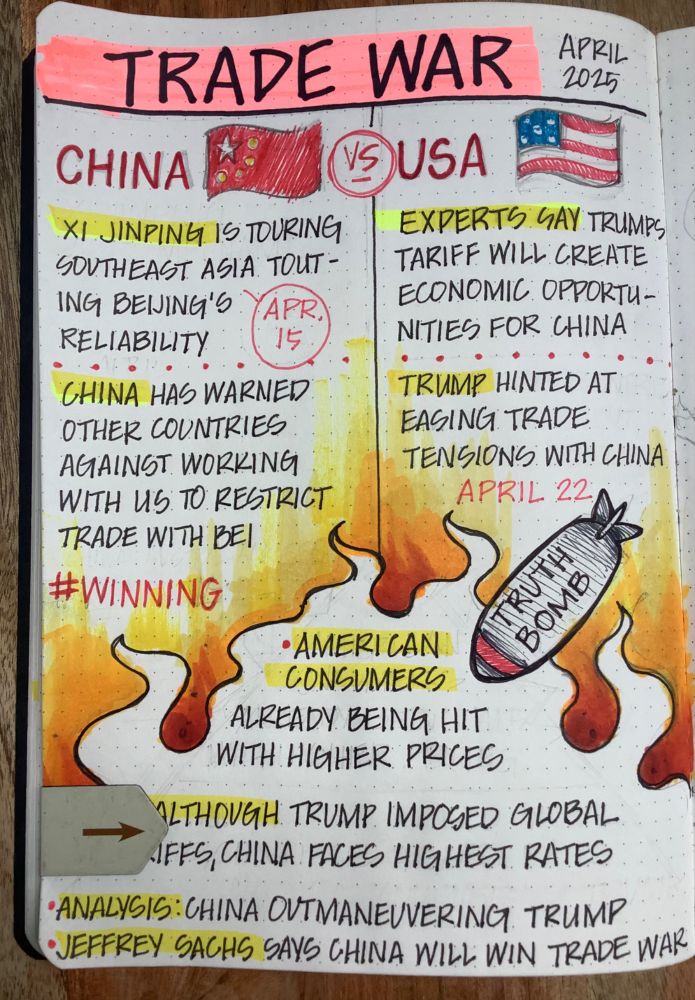 TRADE WAR
APRIL
2025
CHINA
VS
USA
XI JINPING IS TOURING
SOUTHEAST ASIA TOUT-
ING BEIJING'S
RELIABILITY
APR.
15
CHINA HAS WARNED
OTHER COUNTRIES
AGAINST WORKING
WITH US TO RESTRICT
TRADE WITH BEI
#WINNING
EXPERTS SAY TRUMPS
TARIFF WILL CREATE
ECONOMIC OPPORTU-
NITIES FOR CHINA
TRUMP HINTED AT
EASING TRADE
TENSIONS WITH CHINA
APRIL 22
TRUTH
BOMB
• AMERICAN
CONSUMERS
ALREADY BEING HIT
WITH HIGHER PRICES
ALTHOUGH TRUMP IMPOSED GLOBAL
IFFS, CHINA FACES HIGHEST RATES
• ANALYSIS: CHINA OUTMANEUVERING TRUMP
• JEFFREY SACHS SAYS CHINA WILL WIN TRADE WAR